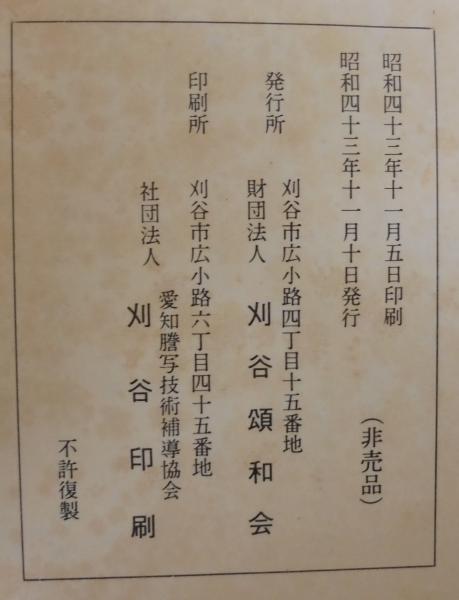 昭和四十三年十一月五日印刷
昭和四十三年十一月十日発行
(非売品)
発行所
刈谷市広小路四丁目十五番地
財団法人 刈谷頌和会
印刷所
刈谷市広小路六丁目四十五番地
愛知謄写技術補導協会
社団法人 刈谷印刷
不許復製